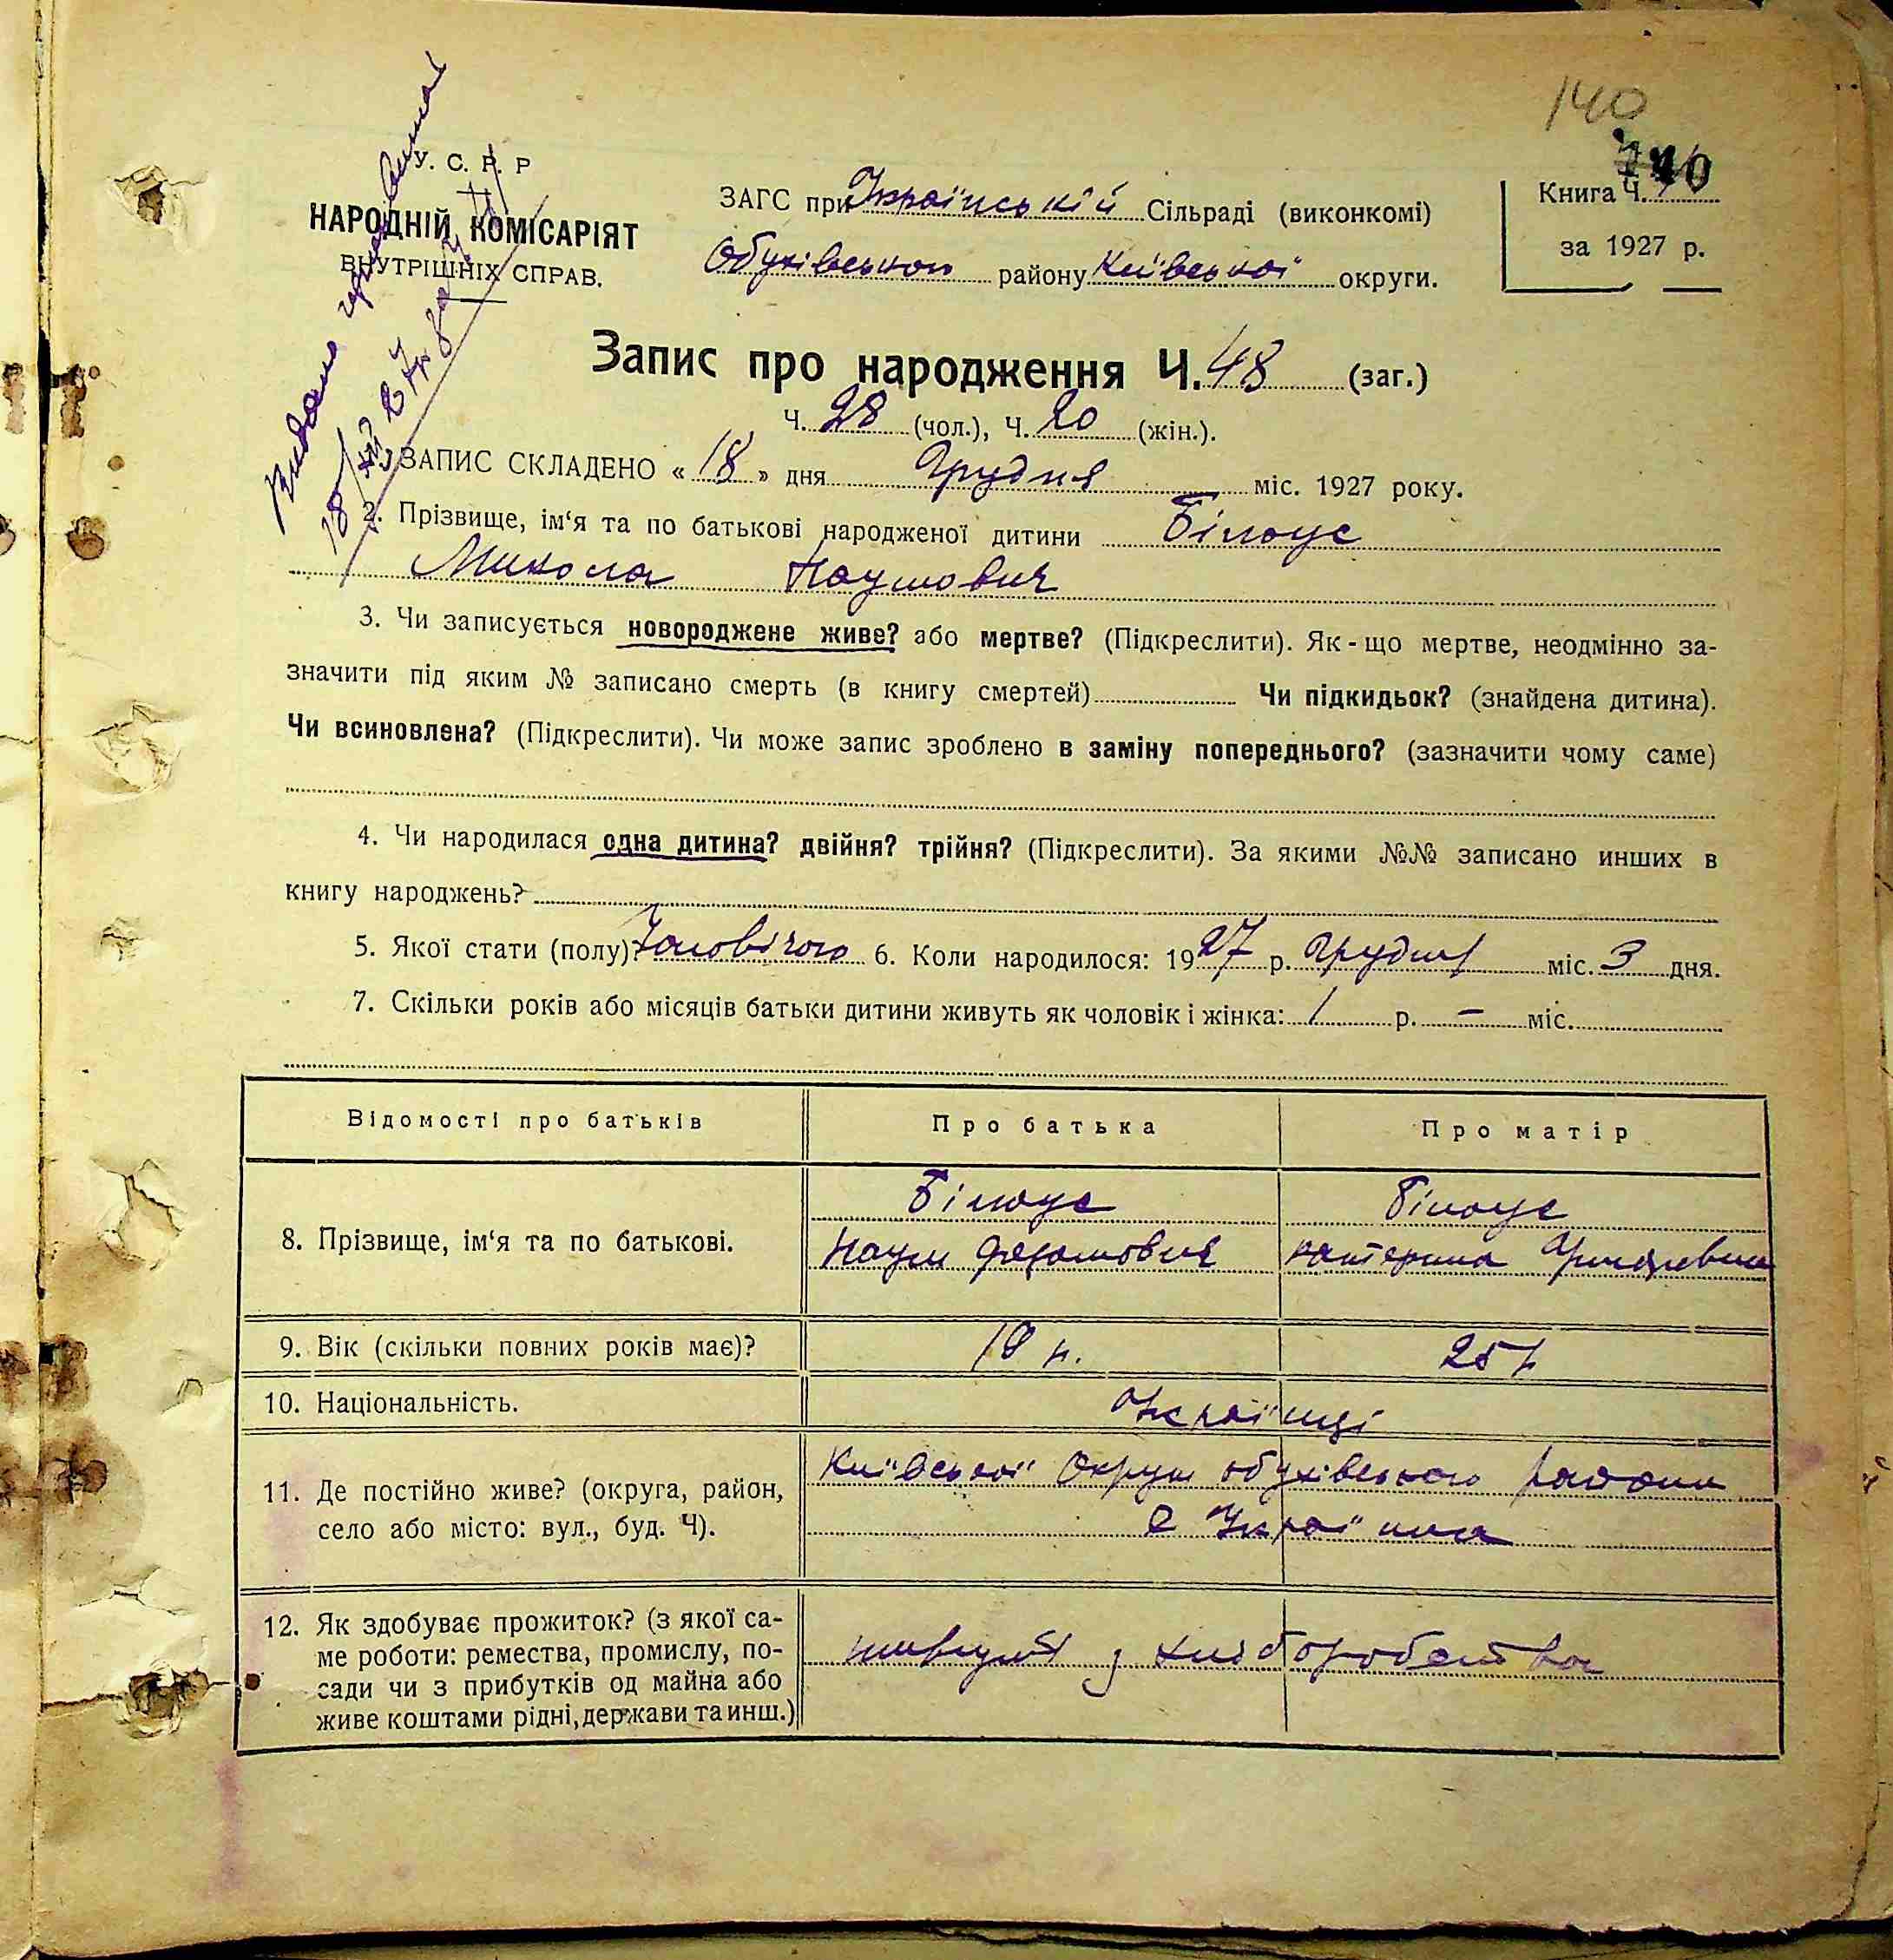 140
140
У. С. Р. Р
НАРОДНІЙ КОМІСАРІЯТ
ВНУТРІШНІХ СПРАВ.
ЗАГС при Українській Сільраді (виконкомі)
Обухівського району Київської округи.
Книга Ч.
за 1927 р.
Запис про народження Ч. 48 (заг.)
Ч. 28 (чол.), Ч. 20 (жін.).
ЗАПИС СКЛАДЕНО « 18 » дня Грудня міс. 1927 року.
2. Прізвище, ім‘я та по батькові народженої дитини Білоус
Микола Наумович
3. Чи записується новороджене живе? або мертве? (Підкреслити). Як-що мертве, неодмінно за-
значити під яким № записано смерть (в книгу смертей) Чи підкидьок? (знайдена дитина).
Чи всиновлена? (Підкреслити). Чи може запис зроблено в заміну попереднього? (зазначити чому саме)
4. Чи народилася одна дитина? двійня? трійня? (Підкреслити). За якими №№ записано инших в
книгу народжень?
5. Якої стати (полу)? Чоловічого 6. Коли народилося: 1927 р. Грудня міс. 3 дня.
7. Скільки років або місяців батьки дитини живуть як чоловік і жінка: 1 р. – міс.
Відомості про батьків Про батька Про матір
8. Прізвище, ім‘я та по батькові.
Білоус Білоус
Наум Катерина
9. Вік (скільки повних років має)? 19 р. 25 р
10. Національність. Українці
11. Де постійно живе? (округа, район,
село або місто: вул., буд. Ч).
Київської Округи обухівського району
с Українка
12. Як здобуває прожиток? (з якої са-
ме роботи: ремества, промислу, по-
сади чи з прибутків од майна або
живе коштами рідні, держави та инш.)
живуть з хліборобства